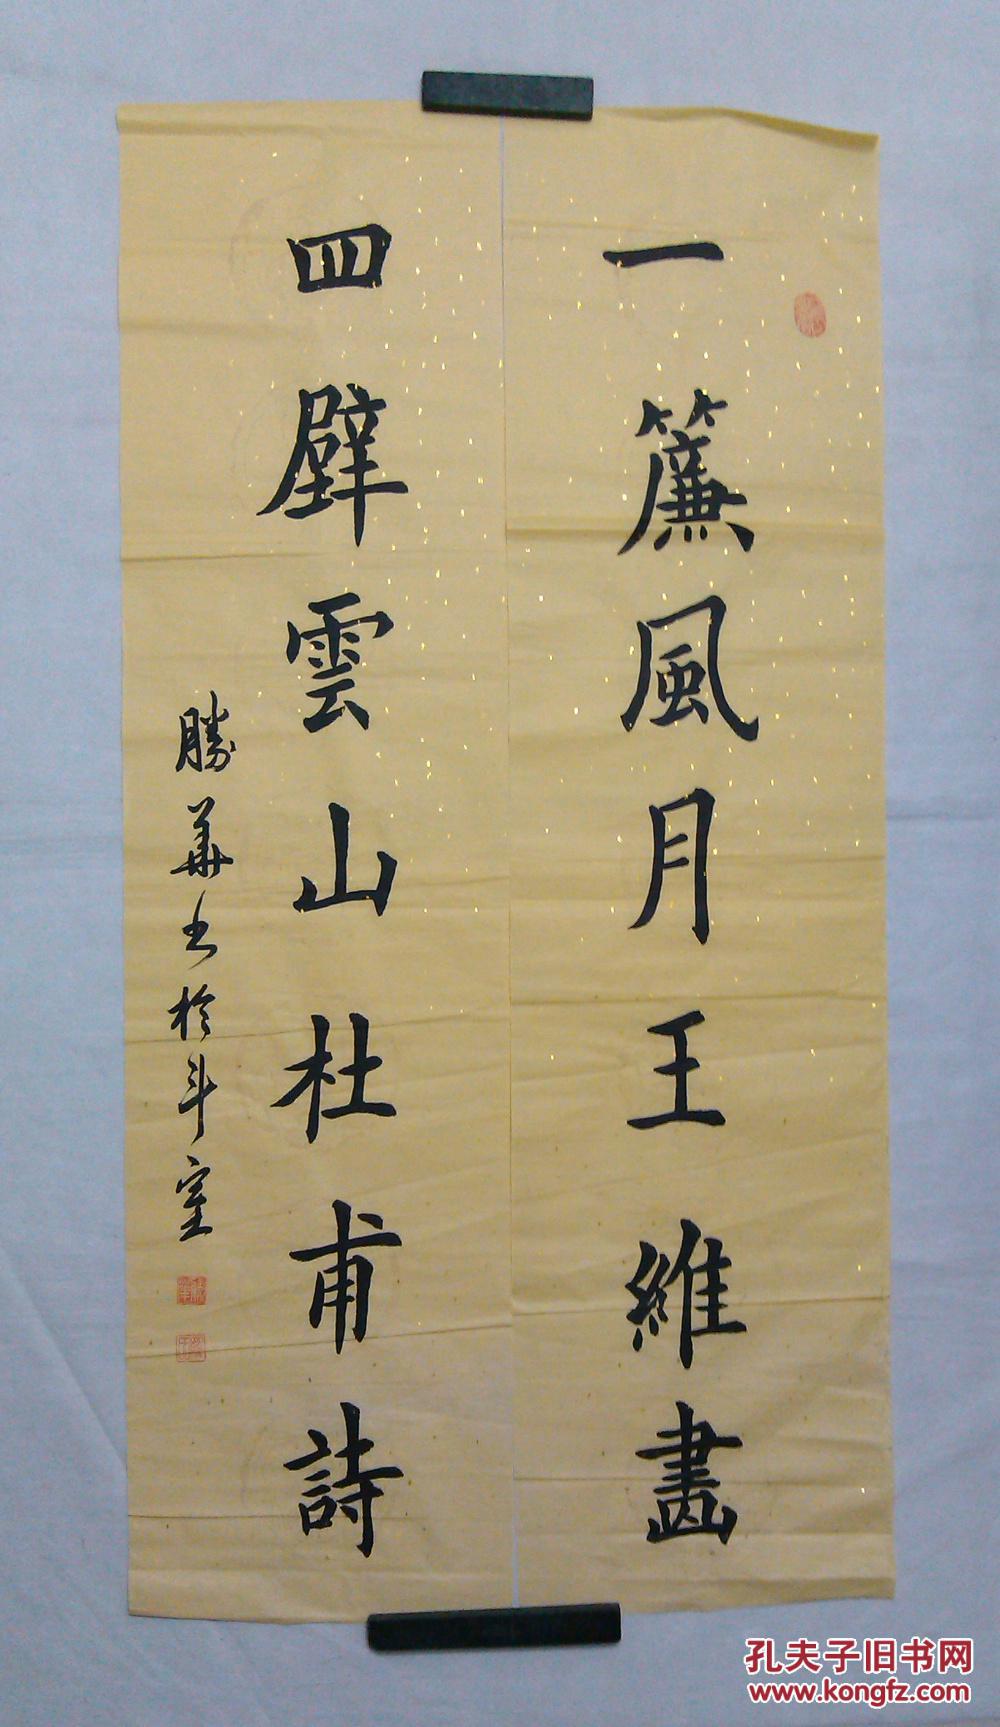 一簾風月王維畫
四壁雲山杜甫詩
勝華书於斗室
孔夫子旧书网
www.kongfz.com